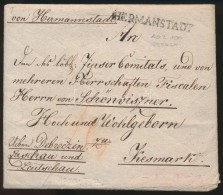 von Hermannstadt
HERMANSTADT
An
Den löbl. Zipser Comitats, und von
mehreren Herrschaften Fiscalen
Herrn von Schönvisner
Hochundwohlgeborn
über Debreczin zu
Kaschau und Kesmark
Leutschau